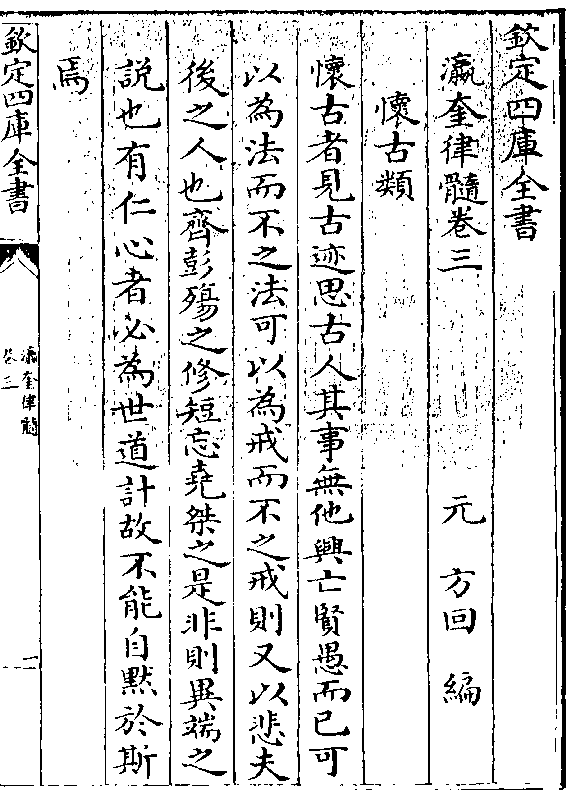 欽定四庫全書
瀛奎律髓卷三
元 方回 編
懷古類
懷古者見古迹思古人其事無他興亡賢愚而已可
以為法而不之法可以為戒而不之戒則又以悲夫
後之人也齊彭殤之修短忘堯桀之是非則異端之
說也有仁心者必為世道計故不能自黙於斯
焉
欽定四庫全書
瀛奎律髓
卷三
一